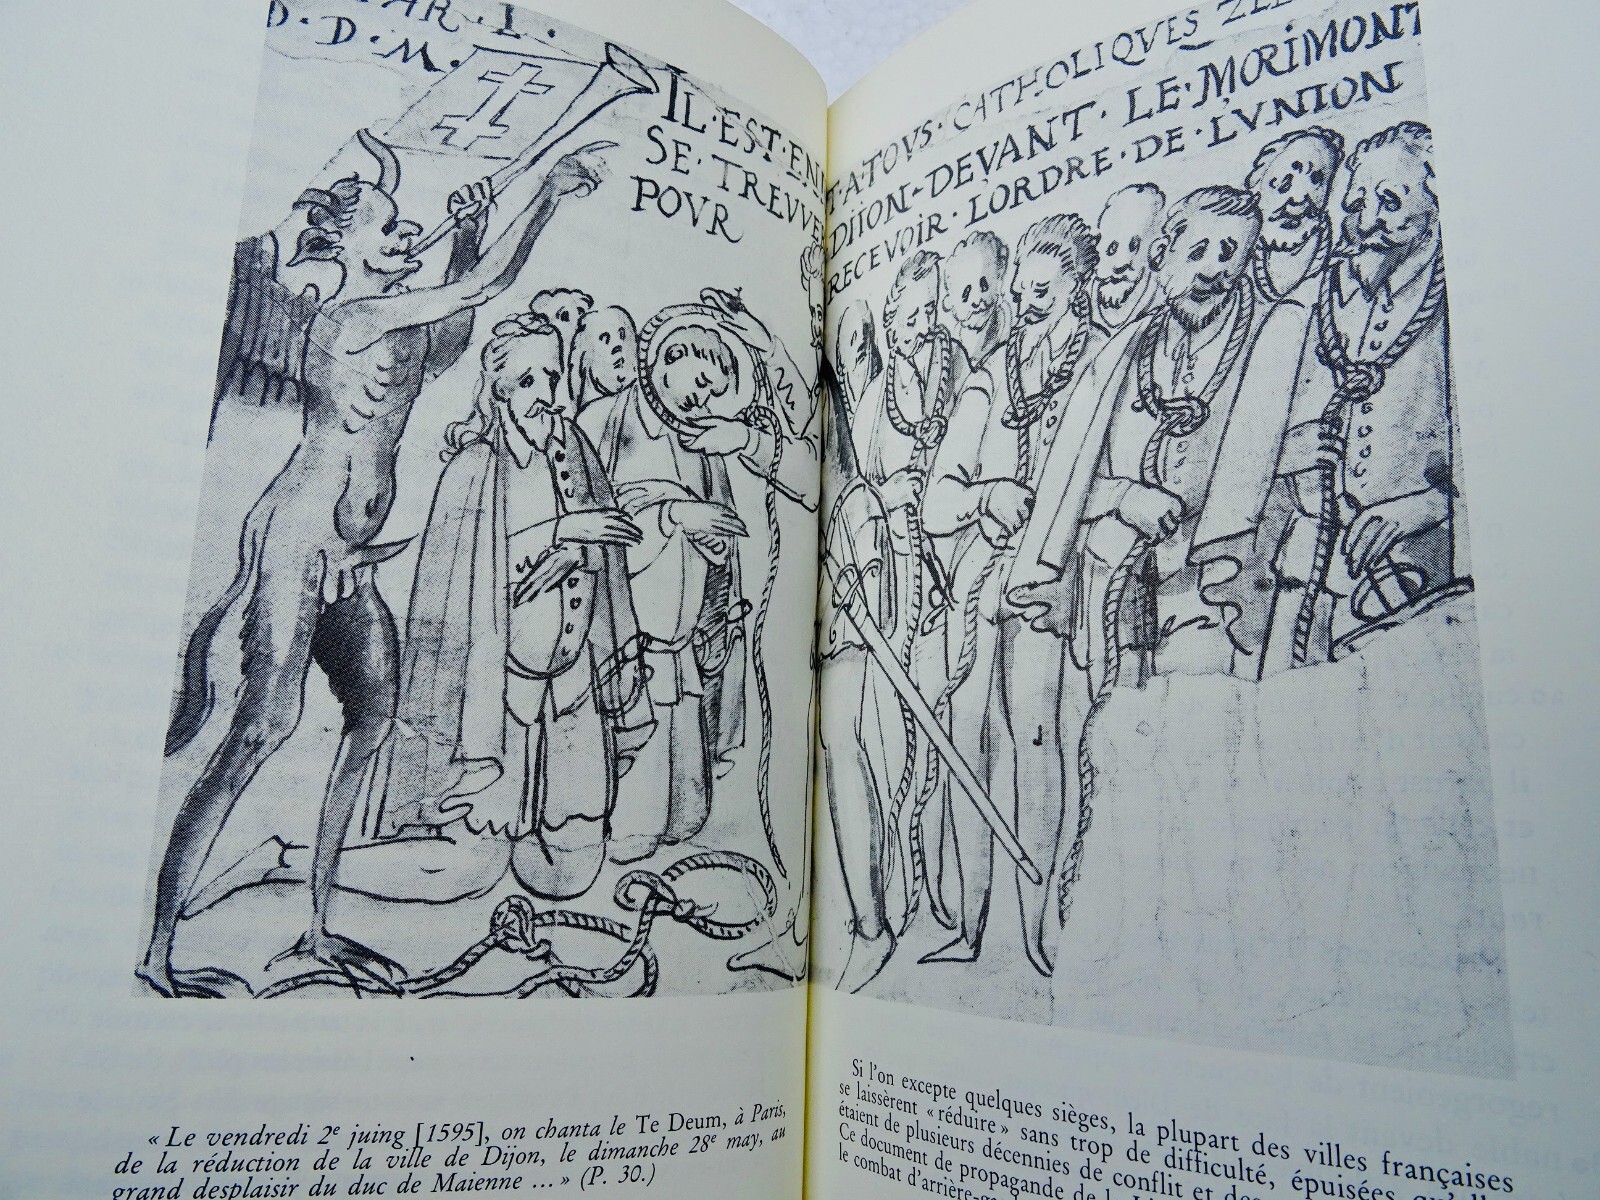 PAR · I ·
D · D · M ·
IL · EST · EN
SE · TREVVE
POVR
T · A · TOVS · CATHOLIQVES ZEL
DIION - DEVANT · LE · MORIMONT
RECEVOIR · L'ORDRE · DE · L'VNION
« Le vendredi 2e juing [1595], on chanta le Te Deum, à Paris,
de la réduction de la ville de Dijon, le dimanche 28e may, au
grand desplaisir du duc de Maienne ... » (P. 30.)
Si l'on excepte quelques sièges, la plupart des villes françaises
se laissèrent « réduire » sans trop de difficulté, épuisées qu'elles
étaient de plusieurs décennies de conflit et des
Ce document de propagande de la
le combat d'arrière-ga